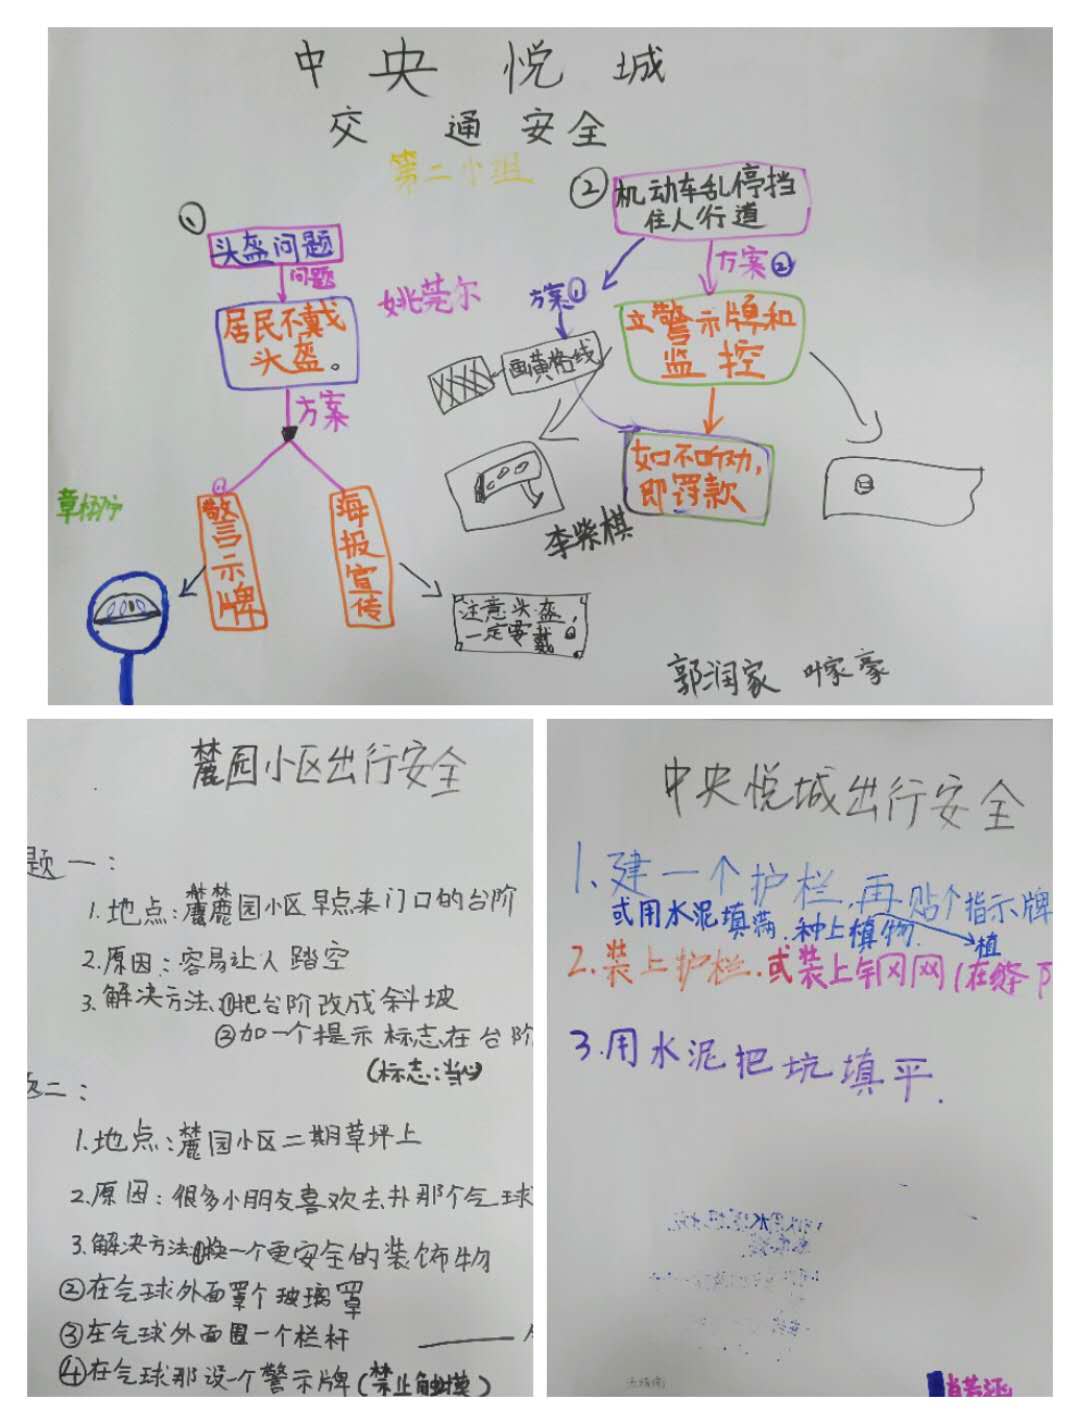 中央悦城
交通安全
第二小组
①
头盔问题
问题
居民不戴
头盔。
方案
警示牌
海报宣传
注意头盔,
一定要戴
姚莞尔
②机动车乱停挡
住人行道
方案①
方案②
画黄格线
立警示牌和
监控
如不听劝,
即罚款
李紫棋
郭润家 叶家豪
麓园小区出行安全
题一:
1.地点:麓园小区早点来门口的台阶
2.原因:容易让人踏空
3.解决方法:①把台阶改成斜坡
②加一个提示标志在台阶
(标志:当心)
二:
1.地点:麓园小区二期草坪上
2.原因:很多小朋友喜欢去扑那个气球
3.解决方法①换一个更安全的装饰物
②在气球外面罩个玻璃罩
③在气球外面围一个栏杆
④在气球那设一个警示牌(禁止触摸)
中央悦城出行安全
1、建一个护栏,再贴个指示牌
或用水泥填满,种上植物.
植
2.装上护栏.或装上钢网(在
3.用水泥把坑填平.
肖若涵